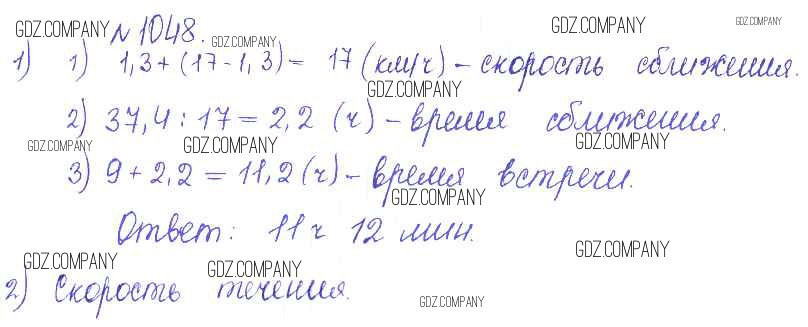 GDZ.COMPANY № 1048. GDZ.COMPANY GDZ.COMPANY GDZ.COMPANY
1) 1) 1,3 + (17 - 1,3) = 17 (км/ч) - скорость сближения.
GDZ.COMPANY
2) 37,4 : 17 = 2,2 (ч) - время сближения.
GDZ.COMPANY GDZ.COMPANY GDZ.COMPANY
3) 9 + 2,2 = 11,2 (ч) - время встречи.
GDZ.COMPANY
Ответ: 11 ч 12 мин.
GDZ.COMPANY GDZ.COMPANY GDZ.COMPANY
2) Скорость течения.
GDZ.COMPANY